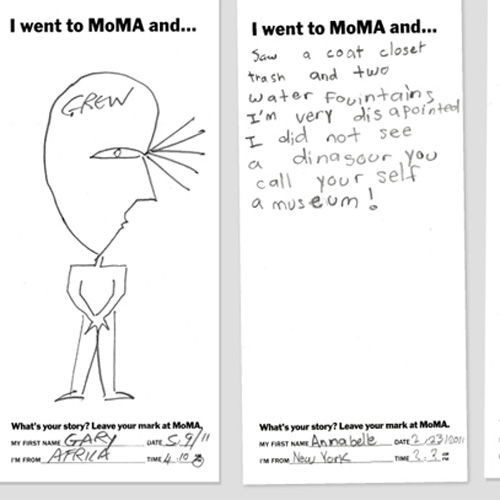 I went to MoMA and...
GREW
What's your story? Leave your mark at MoMA.
MY FIRST NAME GARY DATE 5.9/11
I'M FROM AFRICA TIME 4.10
I went to MoMA and...
Saw a coat closet
trash and two
water fouintains
I'm very disapointed
I did not see
a dinasour you
call your self
a museum!
What's your story? Leave your mark at MoMA.
MY FIRST NAME Annabelle DATE 2/23/2011
I'M FROM New York TIME ?.? PM